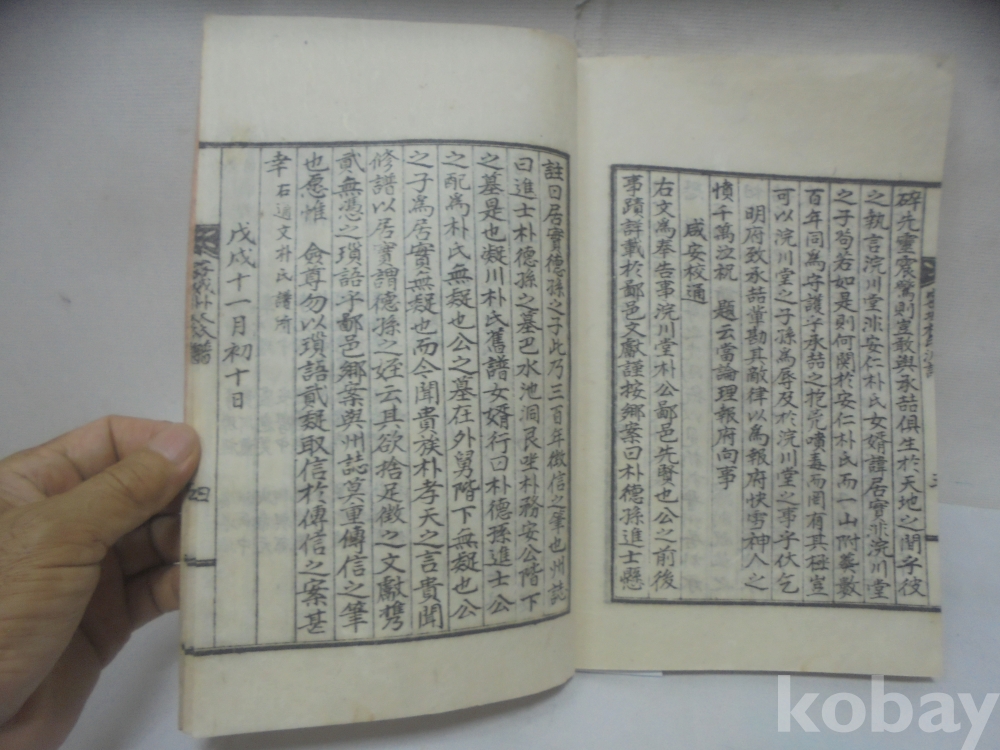 碎先靈震驚則豈敢與承喆俱生於天地之間乎彼
之執言浣川堂非安仁朴氏女婿諱居實非浣川堂
之子苟若如是則何関於安仁朴氏而一山附葬數
百年同爲守護乎承喆之抱兇嘯毒而罔有其極豈
可以浣川堂之子孫爲辱及於浣川堂之事乎伏乞
明府致承喆輩勘其敵律以爲報府快雪神人之
憤千萬泣祝 題云當論理報府向事
咸安校通
右文爲奉告事浣川堂朴公鄙邑先賢也公之前後
事蹟詳載於鄙邑文獻謹按鄉案曰朴德孫進士縣
註曰居實德孫之子此乃三百年徵信之筆也州誌
曰進士朴德孫之墓巴水池洞艮坐朴務安公階下
之墓是也凝川朴氏舊譜女婿行曰朴德孫進士公
之配爲朴氏無疑也公之墓在外舅階下無疑也公
之子爲居實無疑也而今聞貴族朴孝天之言貴聞
修譜以居實謂德孫之姪云其欲捨足徵之文獻携
貳無憑之瑣語乎鄙邑鄉案與州誌莫重傳信之筆
也愿惟 僉尊勿以瑣語貳疑取信於傳信之案甚
幸 右通文朴氏譜所
戊戌十一月初十日
四
kobay